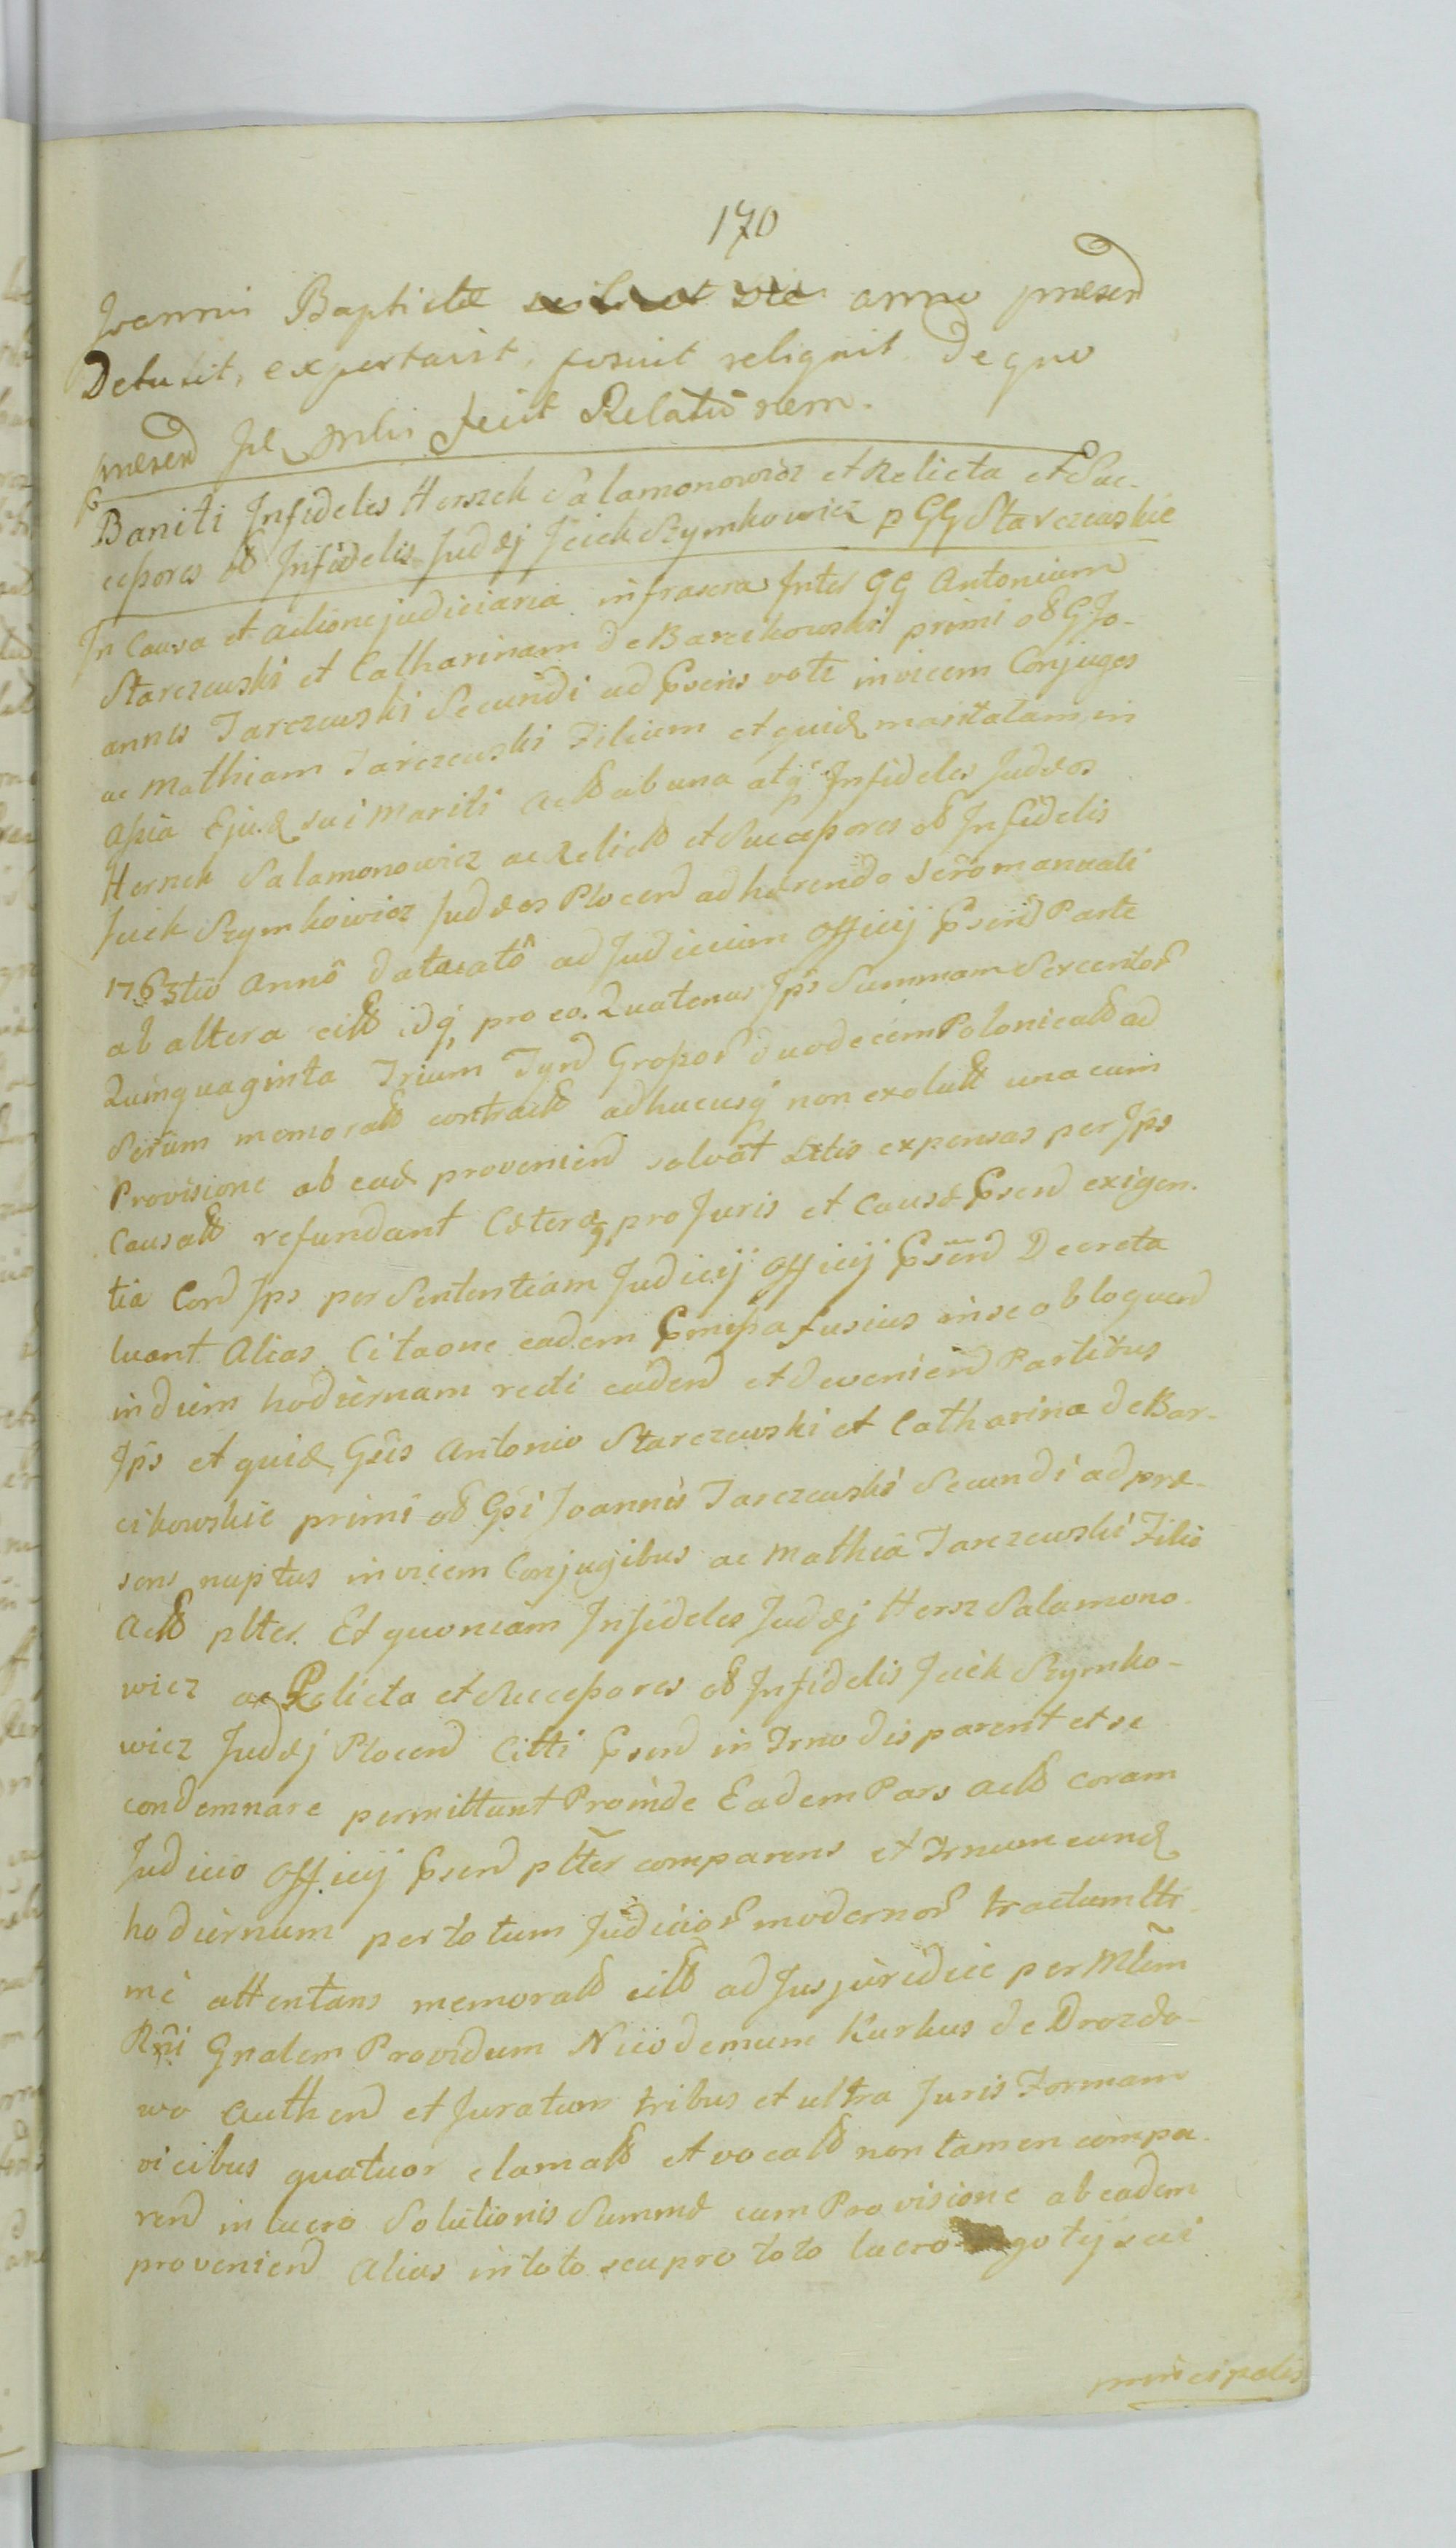 170
Joannis Baptistæ anno præsen
Detulit, exportavit, posuit reliquit de quo
præsen fecit Relationem.
Baniti Infideles Herszek Salamonowicz et Relicta et Suc-
cessores olb Infidelis Judæj Jcick Szymkowicz p GG Starczewskie
In Causa et actione judiciaria infrascra Inter GG Antonium
Starczewski et Catharinam de Barcikowskii primi olb G Jo-
annis Tarczewski Secundi ad Psens voti invicem Conjuges
ac Mathiam Tarczewski Filium et quid maritatam in
assia Ejusd sui Mariti Actb ab una atq Infideles Judæos
Herszek Salamonowicz ac Relictb et Successores olb Infidelis
Jcick Szymkowicz Judæos Plocen adhærendo Scro manuali
1763tio Anno datuato ad Judicium Officij Psen Parte
ab altera cittb idq pro eo. Quatenus Jps Summam Sexcentor
Quinquaginta Trium Tyn Grossor duodecim Polonicalb ad
Scrum memoratb contractb adhucusq non exolutb una cum
Provisione ab ead provenien solvat Litis expensas per Jps
Causatb refundant Cæteraq pro Juris et Causæ Psen exigen-
tia Con Jps per Sententiam Judicij Officij Psen Decreta
luant Alias Citaone eadem Pmissa fusius in se obloquen
in diem hodiernam recte caden et devenien Partibus
Jps et quid Gsis Antonio Starczewski et Catharina de Bar-
cikowskie primi olb Gsi Joannis Tarczewski Secundi ad præ-
sens nuptus invicem Conjugibus ac Mathia Tarczewski Filio
Actb plter. Et quoniam Infideles Judæj Hersz Salamono-
wicz ac Relicta et Successores olb Infidelis Jcick Szymko-
wicz Judæj Plocen Citti Psen in Trno disparent et se
condemnare permittunt Proinde Eadem Pars Actb coram
Judicio Officij Psen plter comparens et Trnum eund
hodiernum per totum Judicior modernor tractum ltti-
me attentans memoratb cittb ad Jus juridice per Mlem
Rni Gnalem Providum Nicodemum Kurkus de Drozdo-
wo Authen et Juratum tribus et ultra Juris Formam
vicibus quatuor clamatb et vocatb non tamen compa-
ren in lucro Solutionis Summæ cum Provisione ab eadem
provenien Alias in toto seu pro toto lucro gotij sui
principalis